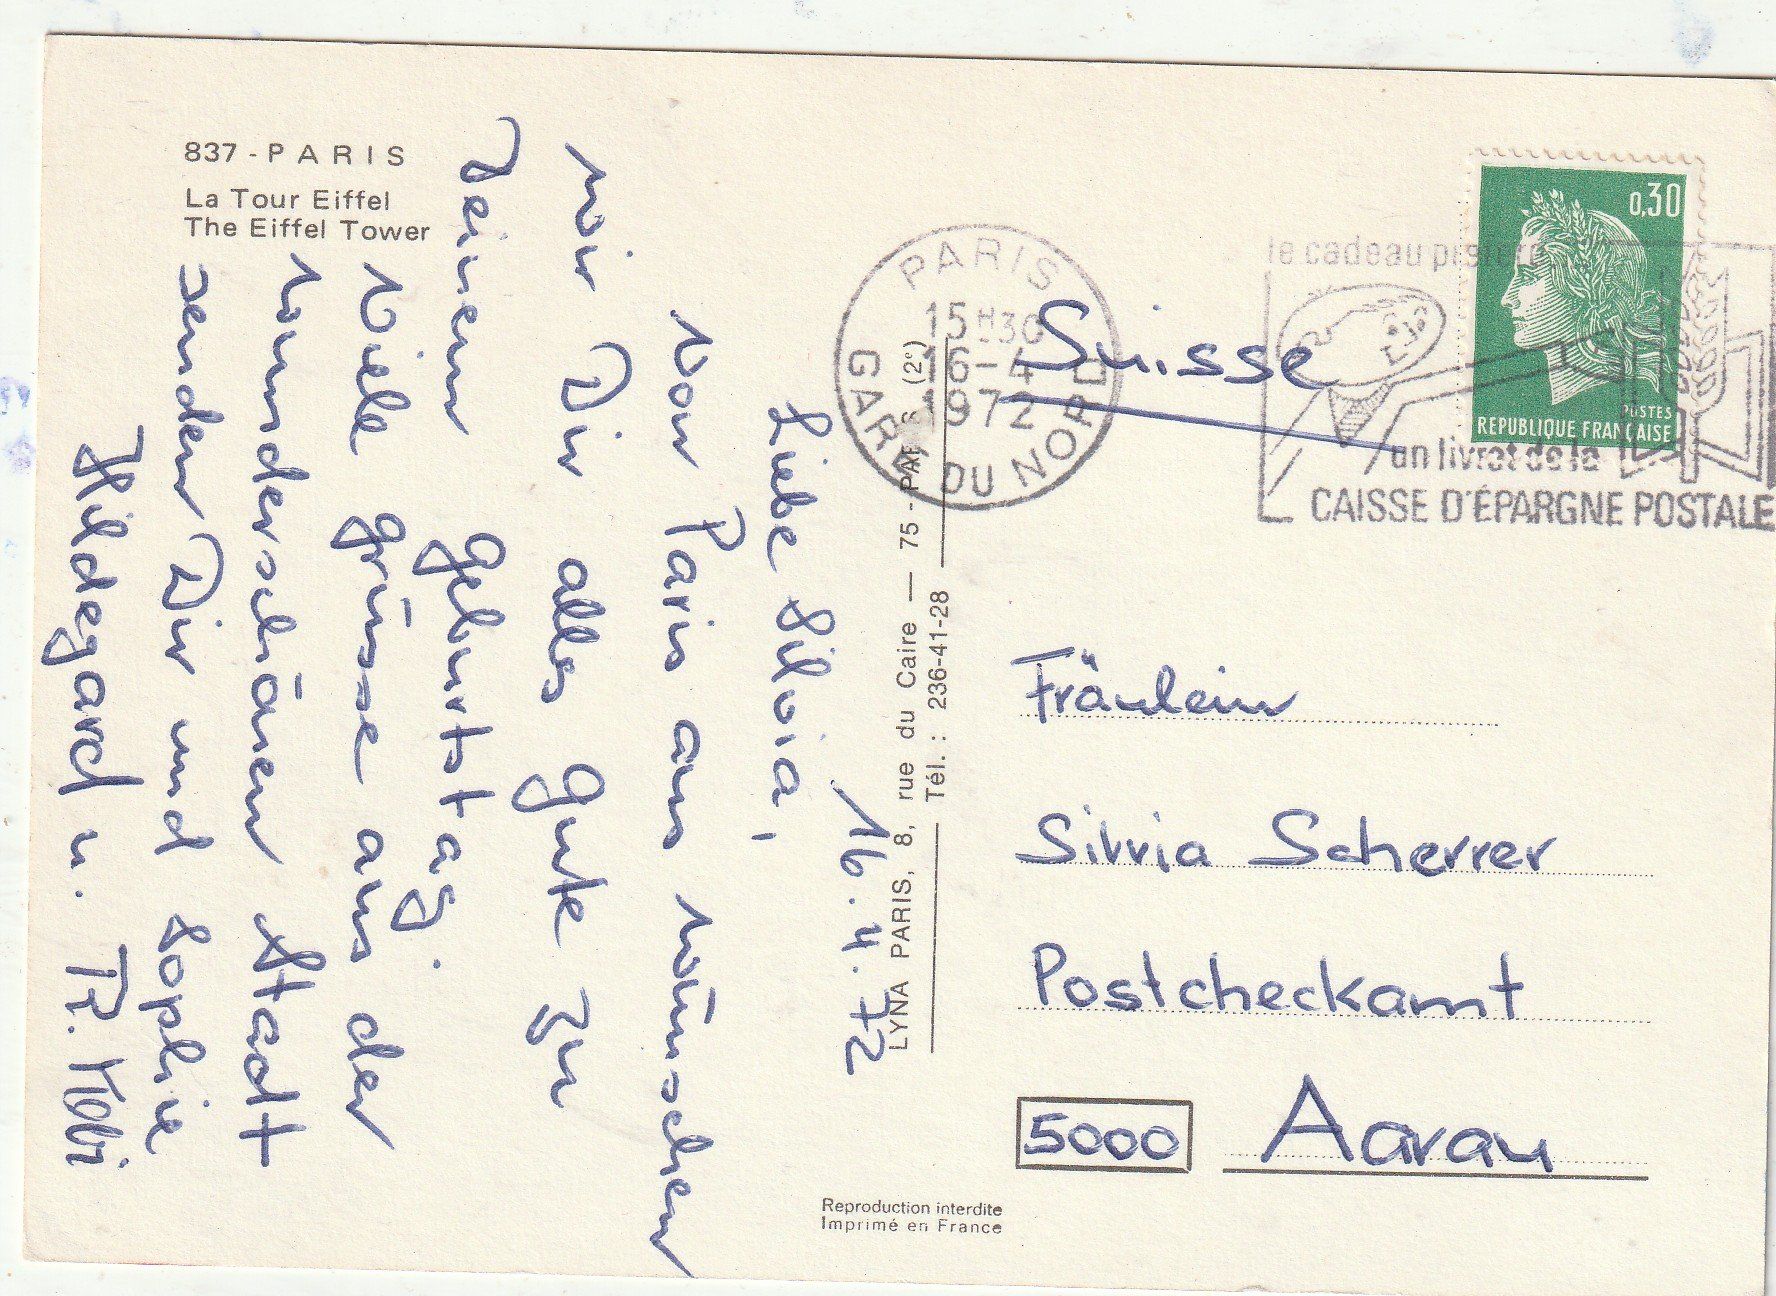 837 - PARIS
La Tour Eiffel
The Eiffel Tower
16.4.72
Liebe Silvia,
Von Paris aus wünschen
wir Dir alles gute zu
Deinem geburtstag.
Viele grüsse aus der
wunderschönen Stadt
senden Dir und Sophie
Hildegard u. Fr.
LYNA PARIS, 8, rue du Caire — 75 - PARIS (2e)
Tél. : 236-41-28
PARIS
15H30
16-4
1972
GARE DU NORD
le cadeau
un livret de la
CAISSE D'ÉPARGNE POSTALE
0,30
POSTES
REPUBLIQUE FRANÇAISE
Suisse
Fräulein
Silvia Scherrer
Postcheckamt
5000 Aarau
Reproduction interdite
Imprimé en France